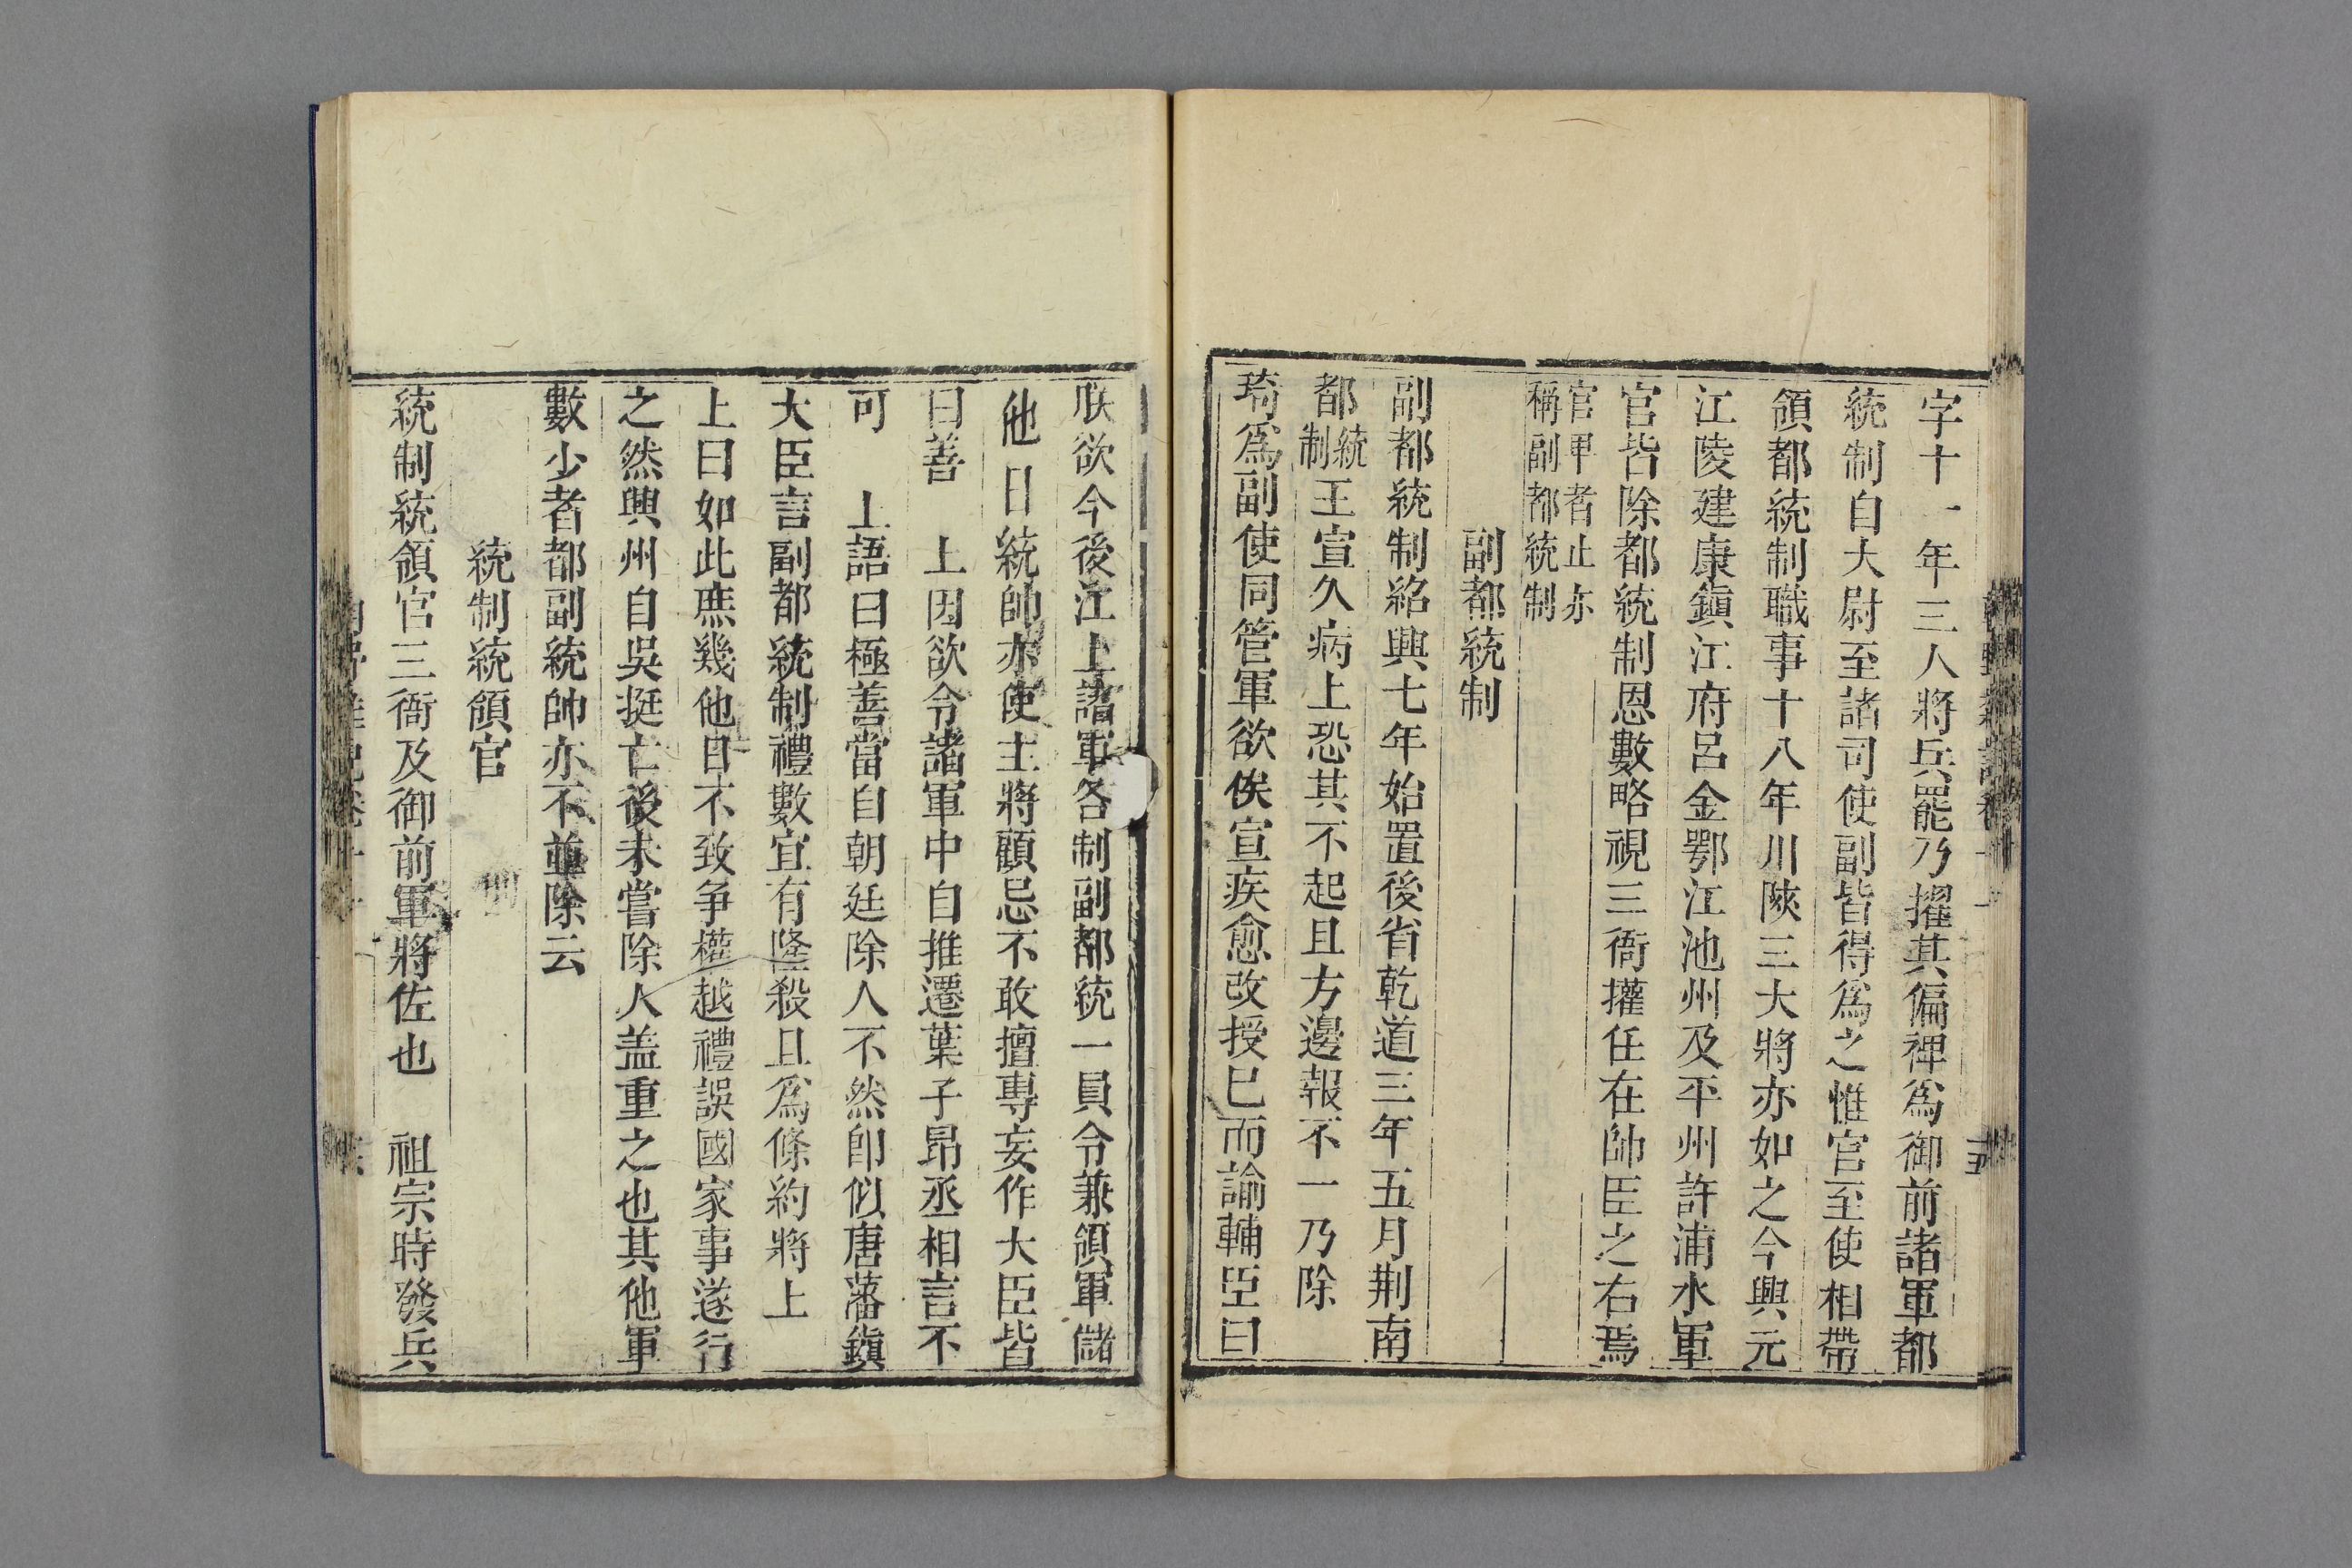 字十一年三人將兵罷乃擢其偏裨爲御前諸軍都
統制自大尉至諸司使副皆得爲之惟官至使相帶
領都統制職事十八年川陝三大將亦如之今興元
江陵建康鎭江府呂金鄂江池州及平州許浦水軍
官皆除都統制恩數略視三衙擢任在帥臣之右焉
官甲者止亦
稱副都統制
副都統制
副都統制紹興七年始置後省乾道三年五月荆南
都統制王宣久病上恐其不起且方邊報不一乃除
琦爲副使同管軍欲俟宣疾愈改授巳而諭輔臣曰
朕欲今後江上諸軍各制副都統一員令兼領軍儲
他日統帥亦使主將顧忌不敢擅專妄作大臣皆
曰善　上因欲令諸軍中自推遷葉子昂丞相言不
可　上語曰極善當自朝廷除人不然卽似唐藩鎭
大臣言副都統制禮數宜有隆殺且爲條約將上
上曰如此庶幾他日不致争權越禮誤國家事遂行
之然興州自吳挺亡後未嘗除人盖重之也其他軍
數少者都副統帥亦不並除云
統制統領官
統制統領官三衙及御前軍將佐也　祖宗時發兵